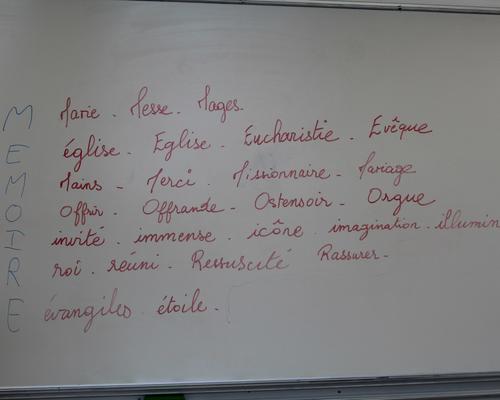 M Marie. Messe. Mages.
E église. Eglise. Eucharistie. Evêque
M Mains - Merci. Missionnaire. Mariage
O Offrir. Offrande - Ostensoir. Orgue
I invité. immense. icône. imagination. illumin
R roi. réuni. Ressuscité Rassurer.
E évangiles. étoile.